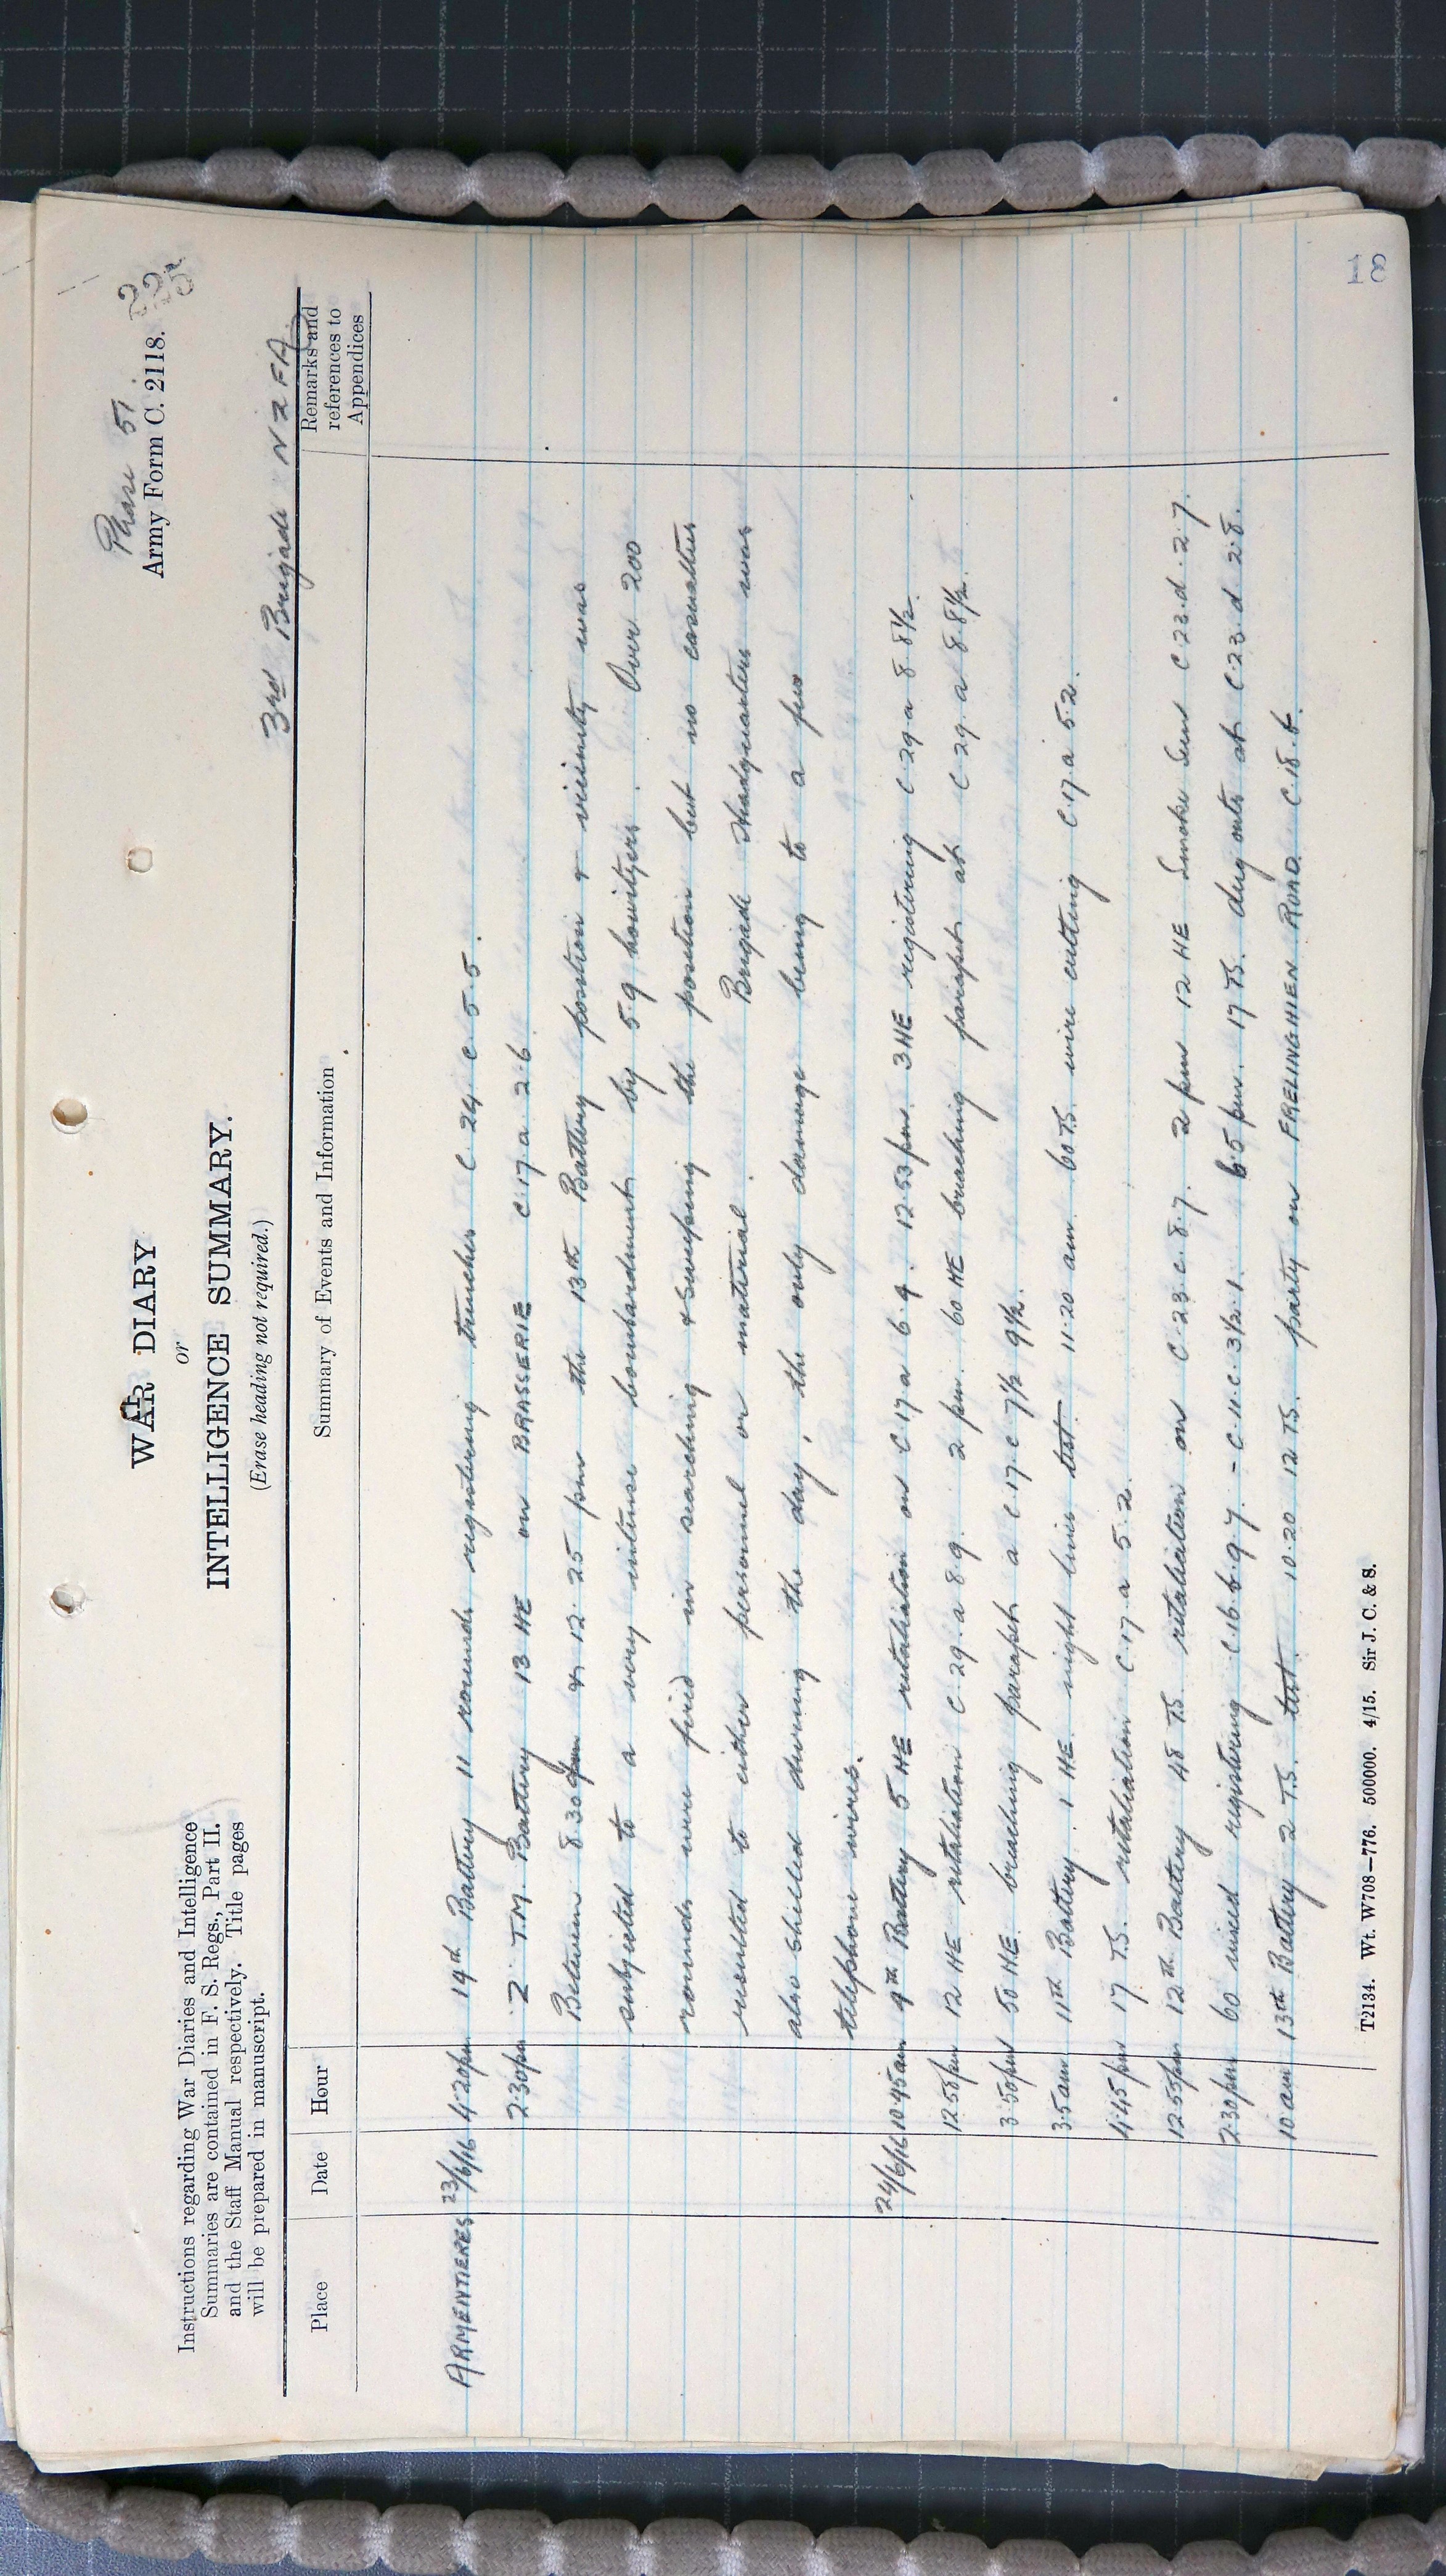 Phase 51.
Army Form C. 2118.
WAR DIARY
or
INTELLIGENCE SUMMARY.
(Erase heading not required.)
Instructions regarding War Diaries and Intelligence
Summaries are contained in F. S. Regs., Part II.
and the Staff Manual respectively. Title pages
will be prepared in manuscript.
3rd Brigade NZFA
Place Date Hour Summary of Events and Information Remarks and references to Appendices
ARMENTIERES 23/6/16 4.20pm 19th Battery 11 rounds registering trenches C 24. c 5.5.
2.30pm Z T.M. Battery 13 HE on BRASSERIE C.17 a 2.6
Between 8.30 & 12.25 pm the 13th Battery position & vicinity was
subjected to a very intense bombardment by 5.9 howitzers. Over 200
rounds were fired in searching & sweeping the position but no casualties
resulted to either personnel or material. Brigade Headquarters was
also shelled during the day, the only damage being to a few
telephone wires.
24/6/16 10.45am 9th Battery 5 HE retaliation on C 17 a 6.9. 12.53pm. 3HE registering C 29.a 8.8½.
12.58pm 12 HE retaliation C 29.a 8.9. 2 pm. 60 HE breaching parapet at C 29.a 8.8½.
3.50pm 50 HE. breaching parapet a C 17.c 7½ 9½.
3.5am 11th Battery. 1 HE. night lines test. 11.20 am. 60 TS. wire cutting C.17.a 5.2.
4.45pm 17 T.S. retaliation C.17.a 5.2.
12.55pm 12th Battery 48 TS. retaliation on C.23.c.8.7. 2 pm 12 HE Smoke seen C 23.d.2.7.
2.30pm 60 mixed registering C.16.b.9.7. - C.11.c.3½.1. 6.5 pm. 17 TS. dug outs at C.23.d 2.8.
10 am 13th Battery 2 T.S. test. 10.20 12 TS. party on FRELINGHIEN ROAD. C.18.b.
T2134. Wt. W708—776. 500000. 4/15. Sir J. C. & S.
18